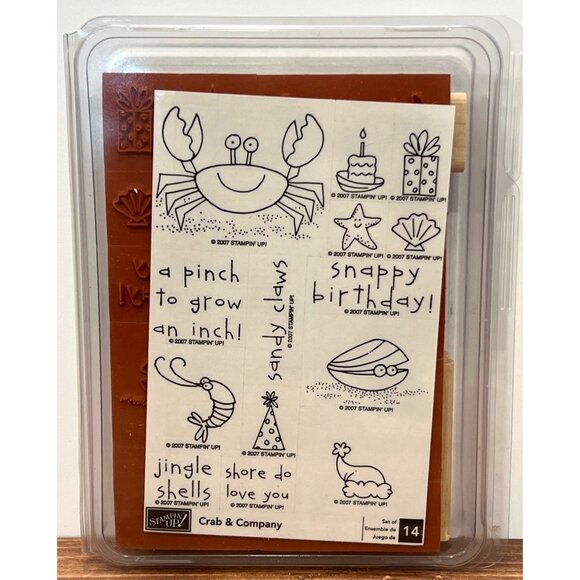 © 2007 STAMPIN' UP!
© 2007 STAMPIN' UP!
© 2007 STAMPIN' UP!
© 2007 STAMPIN' UP!
© 2007 STAMPIN' UP!
a pinch
to grow
an inch!
© 2007 STAMPIN' UP!
sandy claws
© 2007 STAMPIN' UP!
snappy
birthday!
© 2007 STAMPIN' UP!
© 2007 STAMPIN' UP!
© 2007 STAMPIN' UP!
© 2007 STAMPIN' UP!
jingle
shells
© 2007 STAMPIN' UP!
shore do
love you
© 2007 STAMPIN' UP!
© 2007 STAMPIN' UP!
STAMPIN' UP!
Crab & Company
Set of
Ensemble de
Juego de
14